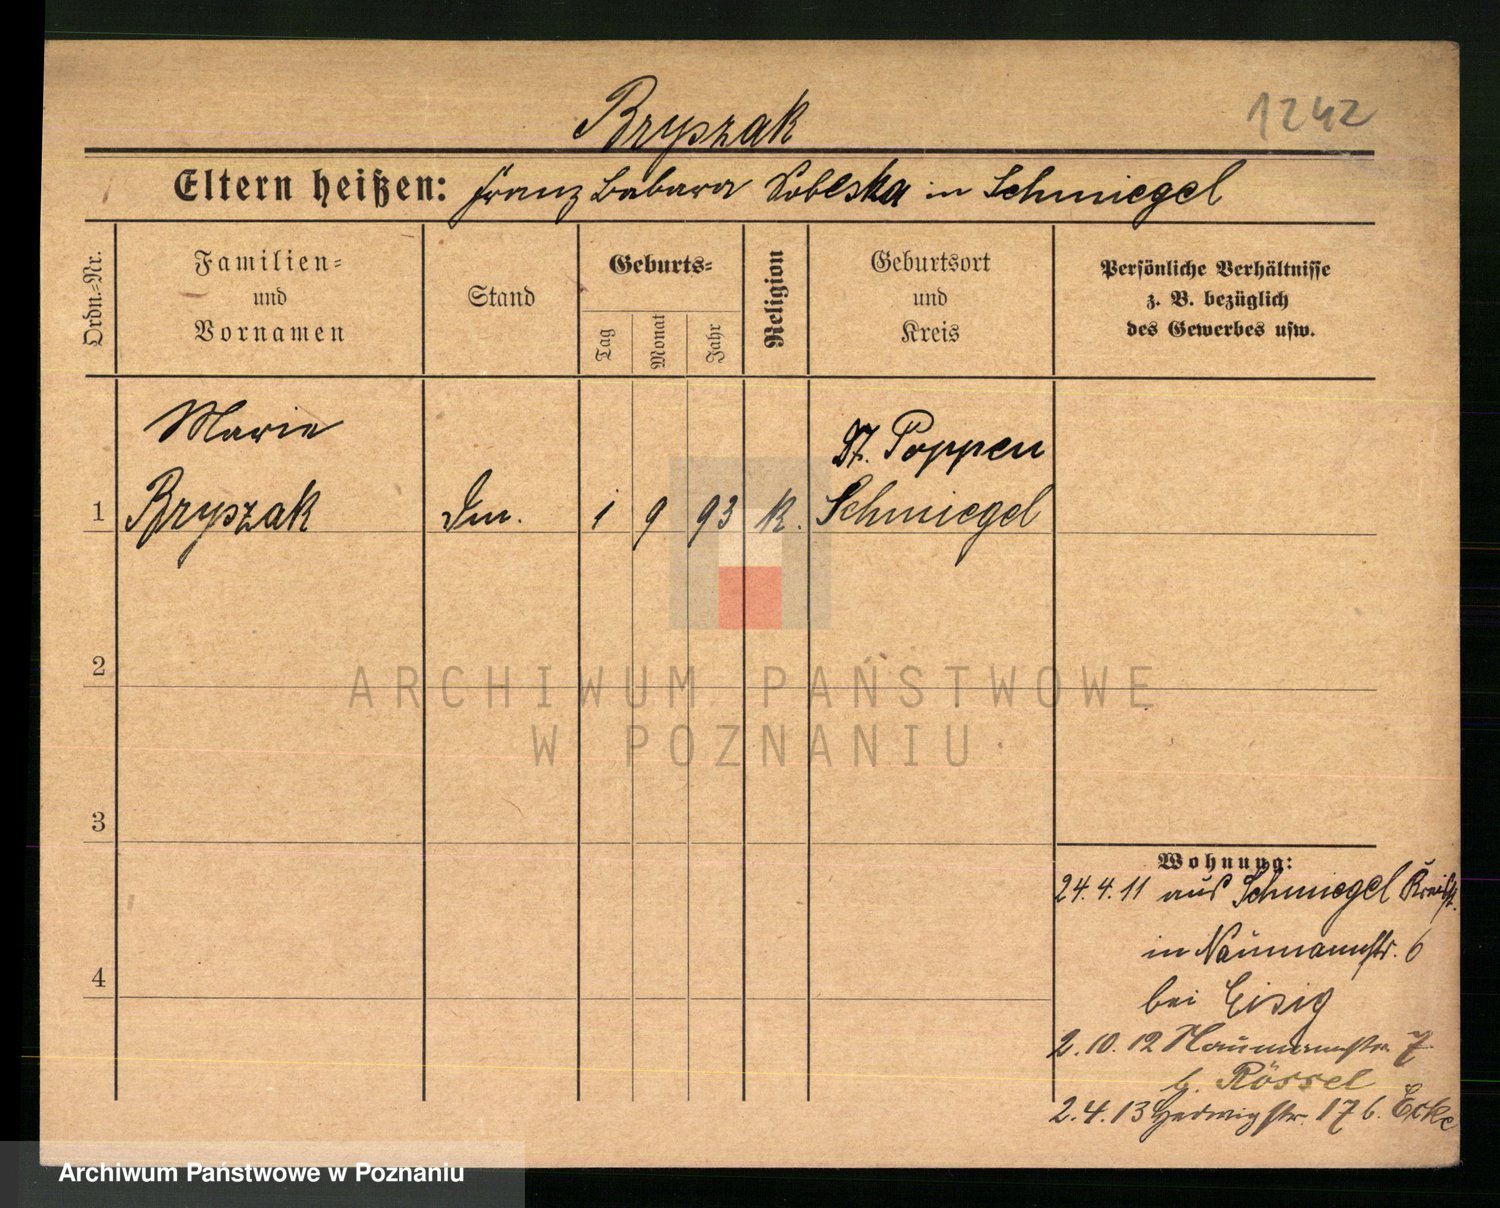 1242
Bryszak
Eltern heißen: Franz Babara Sobeska in Schmiegel
Ordn.-Nr.
Familien-
und
Vornamen
Stand
Geburts-
Tag
Monat
Jahr
Religion
Geburtsort
und
Kreis
Persönliche Verhältnisse
z. B. bezüglich
des Gewerbes usw.
Marie
Bryszak
1
1 9 93 k.
Poppen
Schmiegel
2
3
4
ARCHIWUM PAŃSTWOWE
W POZNANIU
Wohnung:
24.4.11 aus Schmiegel
in Naumannstr. 6
bei Eisig
2.10.12 Naumannstr. 7
b. Rössel
2.4.13 Hedwigstr. 17 b. Ecke
Archiwum Państwowe w Poznaniu